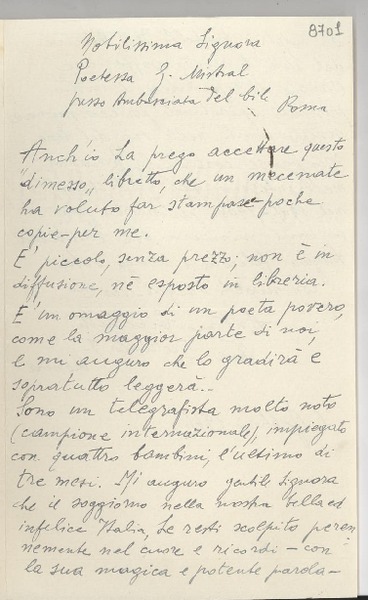 8701
Nobilissima Signora
Poetessa G. Mistral
presso Ambasciata del Cile
Roma
Anch'io La prego accettare questo
"dimesso" libretto, che un mecenate
ha voluto far stampare - poche
copie - per me.
E' piccolo, senza prezzo; non è in
diffusione, nè esposto in libreria.
E' un omaggio di un poeta povero,
come la maggior parte di noi,
e mi auguro che lo gradirà e
sopratutto leggerà...
Sono un telegrafista molto noto
(campione internazionale), impiegato
con quattro bambini, l'ultimo di
tre mesi. Mi auguro gentile Signora
che il soggiorno nella nostra bella ed
infelice Italia, Le resti scolpito peren
nemente nel cuore e ricordi - con
la sua magica e potente parola -